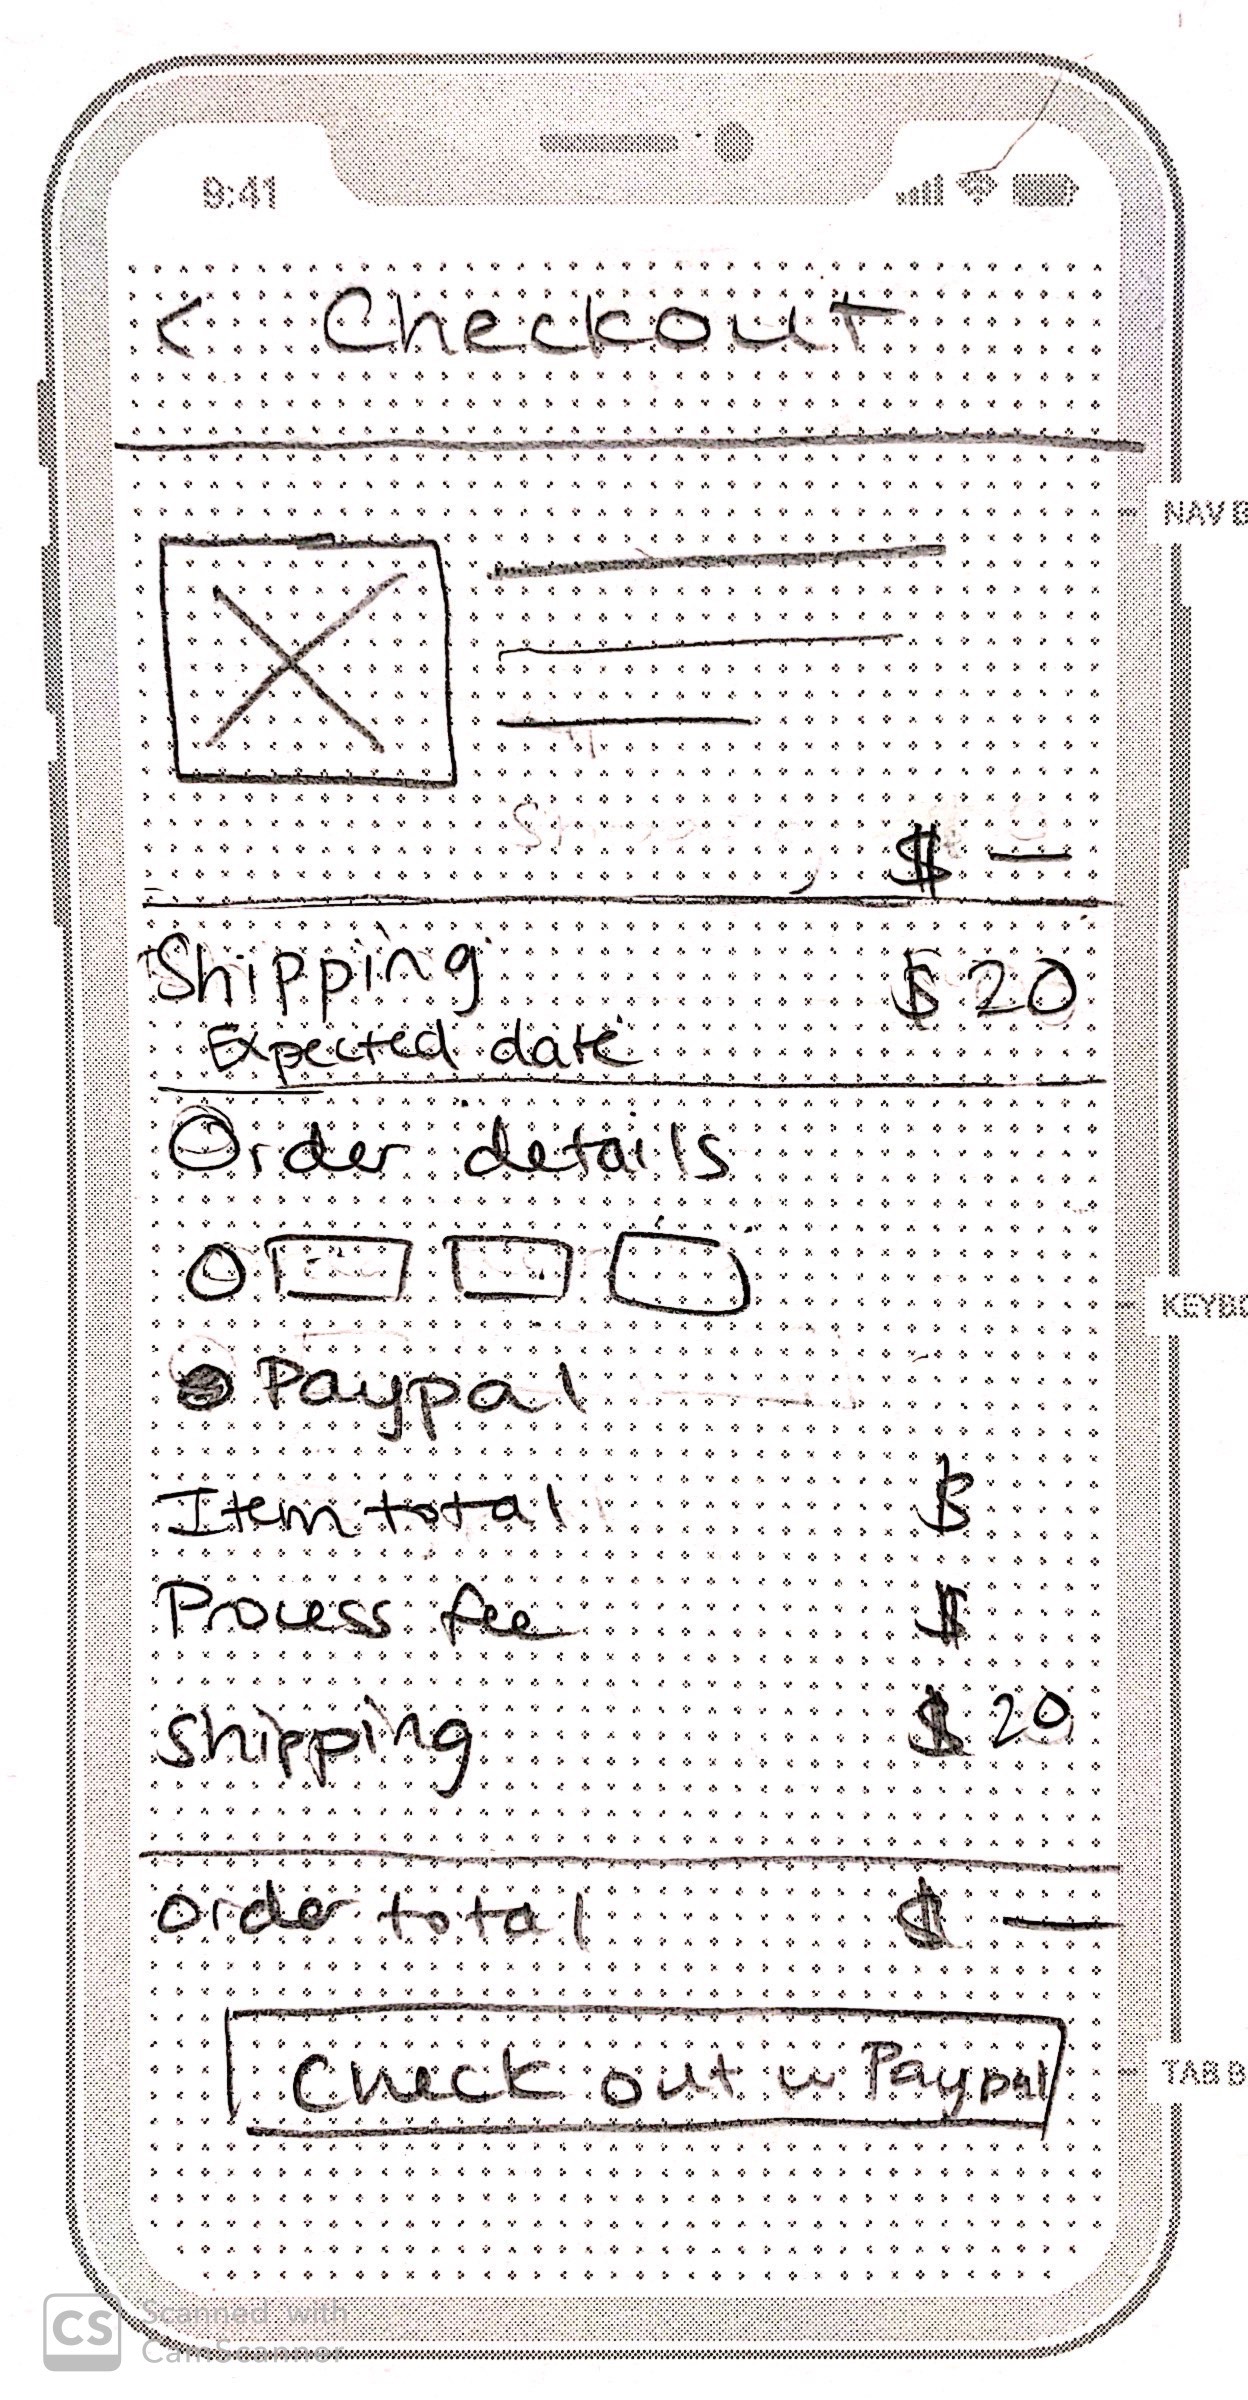 9:41
< Checkout
NAV B
$ —
Shipping $ 20
Expected date
Order details
KEYBO
Paypal
Item total $
Process fee $
Shipping $ 20
Order total $ —
Check out w Paypal
TAB B
CS Scanned with
CamScanner